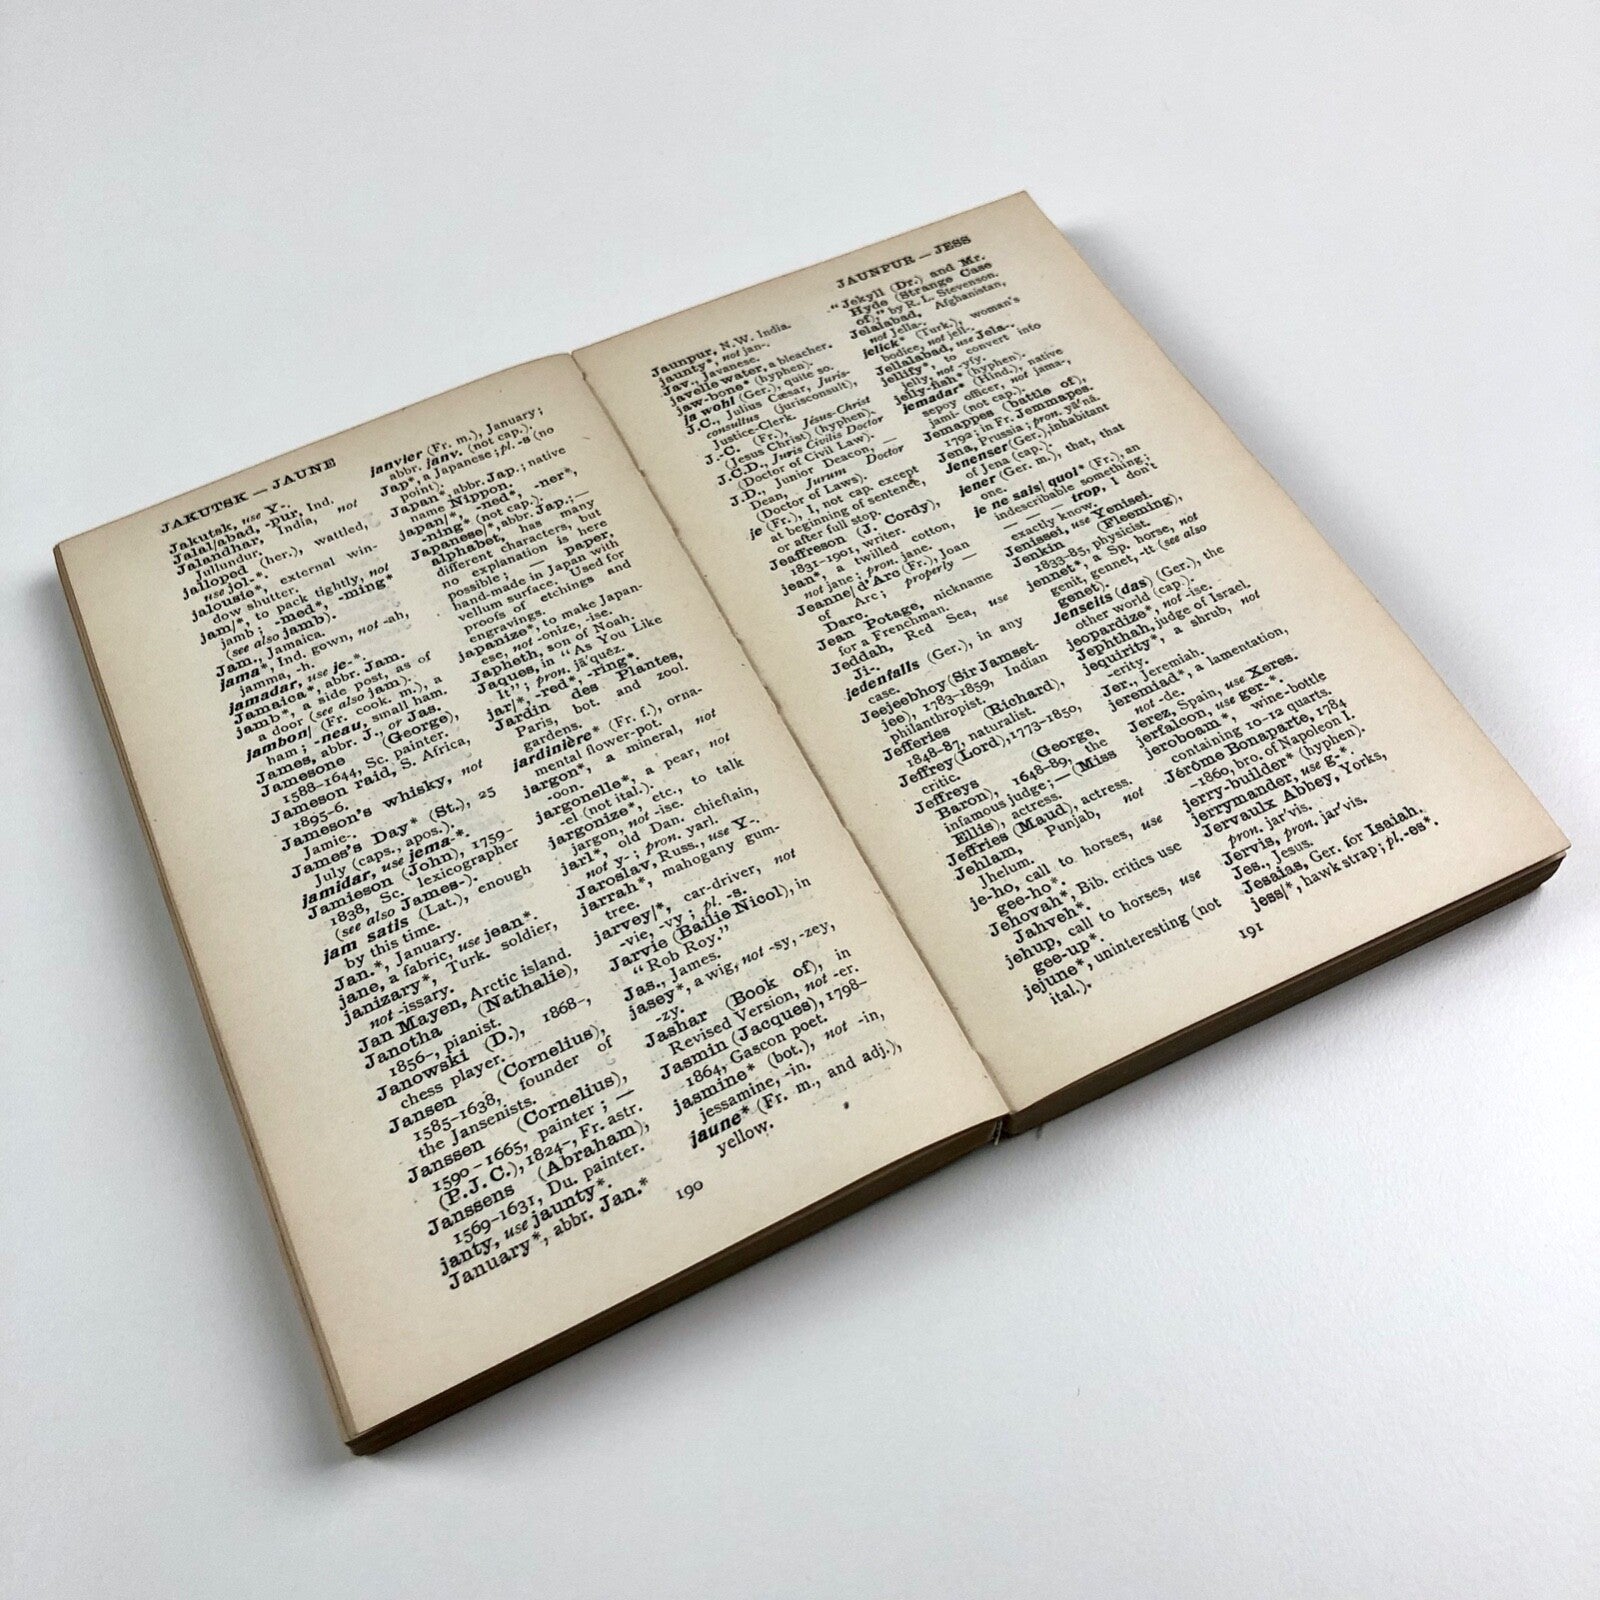 JAKUTSK — JAUNE
Jakutsk, use Y-.
Jalal/abad, -pur, Ind.
Jalandhar, India, not
Jullundur.
jalloped (her.), wattled,
use jol-.*
jalousie*, external win-
dow shutter.
jam/*, to pack tightly, not
jamb; -med*, -ming*
(see also jamb).
Jam., Jamaica.
jama*, Ind. gown, not -ah,
jamma, -h.
jamadar, use je-.*
Jamaica*, abbr. Jam.
jamb*, a side post, as of
a door (see also jam).
jambon/ (Fr. cook. m.), a
ham; -neau, small ham.
James, abbr. J., or Jas.
Jamesone (George),
1588-1644, Sc. painter.
Jameson raid, S. Africa,
1895-6.
Jameson's whisky, not
Jamie-.
James's Day* (St.), 25
July (caps., apos.).
jamidar, use jema-.*
Jamieson (John), 1759-
1838, Sc. lexicographer
(see also James-).
jam satis (Lat.), enough
by this time.
Jan.*, January.
jane, a fabric, use jean*.
janizary*, Turk. soldier,
not -issary.
Jan Mayen, Arctic island.
Janotha (Nathalie),
1856-, pianist.
Janowski (D.), 1868-,
chess player.
Jansen (Cornelius),
1585-1638, founder of
the Jansenists.
Janssen (Cornelius),
1590-1665, painter; —
(P. J. C.), 1824-, Fr. astr.
Janssens (Abraham),
1569-1631, Du. painter.
janty, use jaunty*.
January*, abbr. Jan.*
janvier (Fr. m.), January;
abbr. janv. (not cap.).
Jap*, a Japanese; pl. -s (no
point).
Japan*, abbr. Jap.; native
name Nippon.
japan/*, -ned*, -ner*,
-ning* (not cap.).
Japanese/*, abbr. Jap.; —
alphabet, has many
different characters, but
no explanation is here
possible; — paper,
hand-made in Japan with
vellum surface. Used for
proofs of etchings and
engravings.
japanize*, to make Japan-
ese, not -onize, -ise.
Japheth, son of Noah.
Jaques, in "As You Like
It"; pron. jā'quēz.
jar/*, -red*, -ring*.
Jardin des Plantes,
Paris, bot. and zool.
gardens.
jardinière* (Fr. f.), orna-
mental flower-pot.
jargon*, a mineral, not
-oon.
jargonelle*, a pear, not
-el (not ital.).
jargonize*, etc., to talk
jargon, not -ise.
jarl*, old Dan. chieftain,
not y-; pron. yarl.
Jaroslav, Russ., use Y-.
jarrah*, mahogany gum-
tree.
jarvey/*, car-driver, not
-vie, -vy; pl. -s.
Jarvie (Bailie Nicol), in
"Rob Roy."
Jas., James.
jasey*, a wig, not -sy, -zey,
-zy.
Jashar (Book of), in
Revised Version, not -er.
Jasmin (Jacques), 1798-
1864, Gascon poet.
jasmine* (bot.), not -in,
jessamine, -in.
jaune* (Fr. m., and adj.),
yellow.
190
JAUNPUR — JESS
Jaunpur, N.W. India.
jaunty*, not jan-.
Jav., Javanese.
javelle water, a bleacher.
jaw-bone* (hyphen).
ja wohl (Ger.), quite so.
J.C., Julius Cæsar, Juris-
consultus (jurisconsult),
Justice-Clerk.
J.-C. (Fr.), Jésus-Christ
(Jesus Christ) (hyphen).
J.C.D., Juris Civilis Doctor
(Doctor of Civil Law).
J.D., Junior Deacon, —
Dean, Jurum Doctor
(Doctor of Laws).
je (Fr.), I, not cap. except
at beginning of sentence,
or after full stop.
Jeaffreson (J. Cordy),
1831-1901, writer.
jean*, a twilled cotton,
not jane; pron. jane.
Jeanne/ d'Arc (Fr.), Joan
of Arc; properly —
Darc.
Jean Potage, nickname
for a Frenchman.
Jeddah, Red Sea, use
Ji-.
jedenfalls (Ger.), in any
case.
Jeejeebhoy (Sir Jamset-
jee), 1783-1859, Indian
philanthropist.
Jefferies (Richard),
1848-87, naturalist.
Jeffrey (Lord), 1773-1850,
critic.
Jeffreys (George,
Baron), 1648-89, the
infamous judge; — (Miss
Ellis), actress.
Jeffries (Maud), actress.
Jehlam, Punjab, not
Jhelum.
je-ho, call to horses, use
gee-ho*.
Jehovah*, Bib. critics use
Jahveh*.
jehup, call to horses, use
gee-up*.
jejune*, uninteresting (not
ital.).
"Jekyll (Dr.) and Mr.
Hyde (Strange Case
of)," by R. L. Stevenson.
Jelalabad, Afghanistan,
not Jella-.
jelick* (Turk.), woman's
bodice, not jell-.
Jellalabad, use Jela-.
jellify*, to convert into
jelly, not -yfy.
jelly-fish* (hyphen).
jemadar* (Hind.), native
sepoy officer, not jama-,
jami- (not cap.).
Jemappes (battle of),
1792; in Fr. Jemmapes.
Jena, Prussia; pron. yā'nā.
Jenenser (Ger.), inhabitant
of Jena (cap.).
jener (Ger. m.), that, that
one.
je ne sais/ quoi* (Fr.), an
indescribable something;
— — — trop, I don't
exactly know.
Jenissei, use Yenisei.
Jenkin (Fleeming),
1833-85, physicist.
jennet*, a Sp. horse, not
genit, gennet, -tt (see also
genet).
Jenseits (das) (Ger.), the
other world (cap.).
jeopardize*, not -ise.
Jephthah, judge of Israel.
jequirity*, a shrub, not
-erity.
Jer., Jeremiah.
jeremiad*, a lamentation,
not -de.
Jerez, Spain, use Xeres.
jerfalcon, use ger-*.
jeroboam*, wine-bottle
containing 10-12 quarts.
Jérôme Bonaparte, 1784
-1860, bro. of Napoleon I.
jerry-builder* (hyphen).
jerrymander, use g-*.
Jervaulx Abbey, Yorks,
pron. jar'vis.
Jervis, pron. jar'vis.
Jes., Jesus.
Jesaias, Ger. for Isaiah.
jess/*, hawk strap; pl. -es*.
191